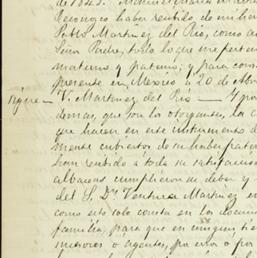 de 1843.
Reconozco haber recibido de mi herm
Pablo Martinez del Rio, como
Señor Padre, todo lo que me perten
materno y paterno; y para cons
presente en Mexico á 20 de Abr
V. Martinez del Rio — Y
demas, que son los otorgantes, la c
que hacen en este instrumento d
mente cubiertos de su haber pater
han recibido a toda su satisfaccion
albaceas cumplieron su deber y
del S. Dn Ventura Martinez
como esto todo consta en los docum
familia, para que en ningun tiem
menores o agentes, por error o por